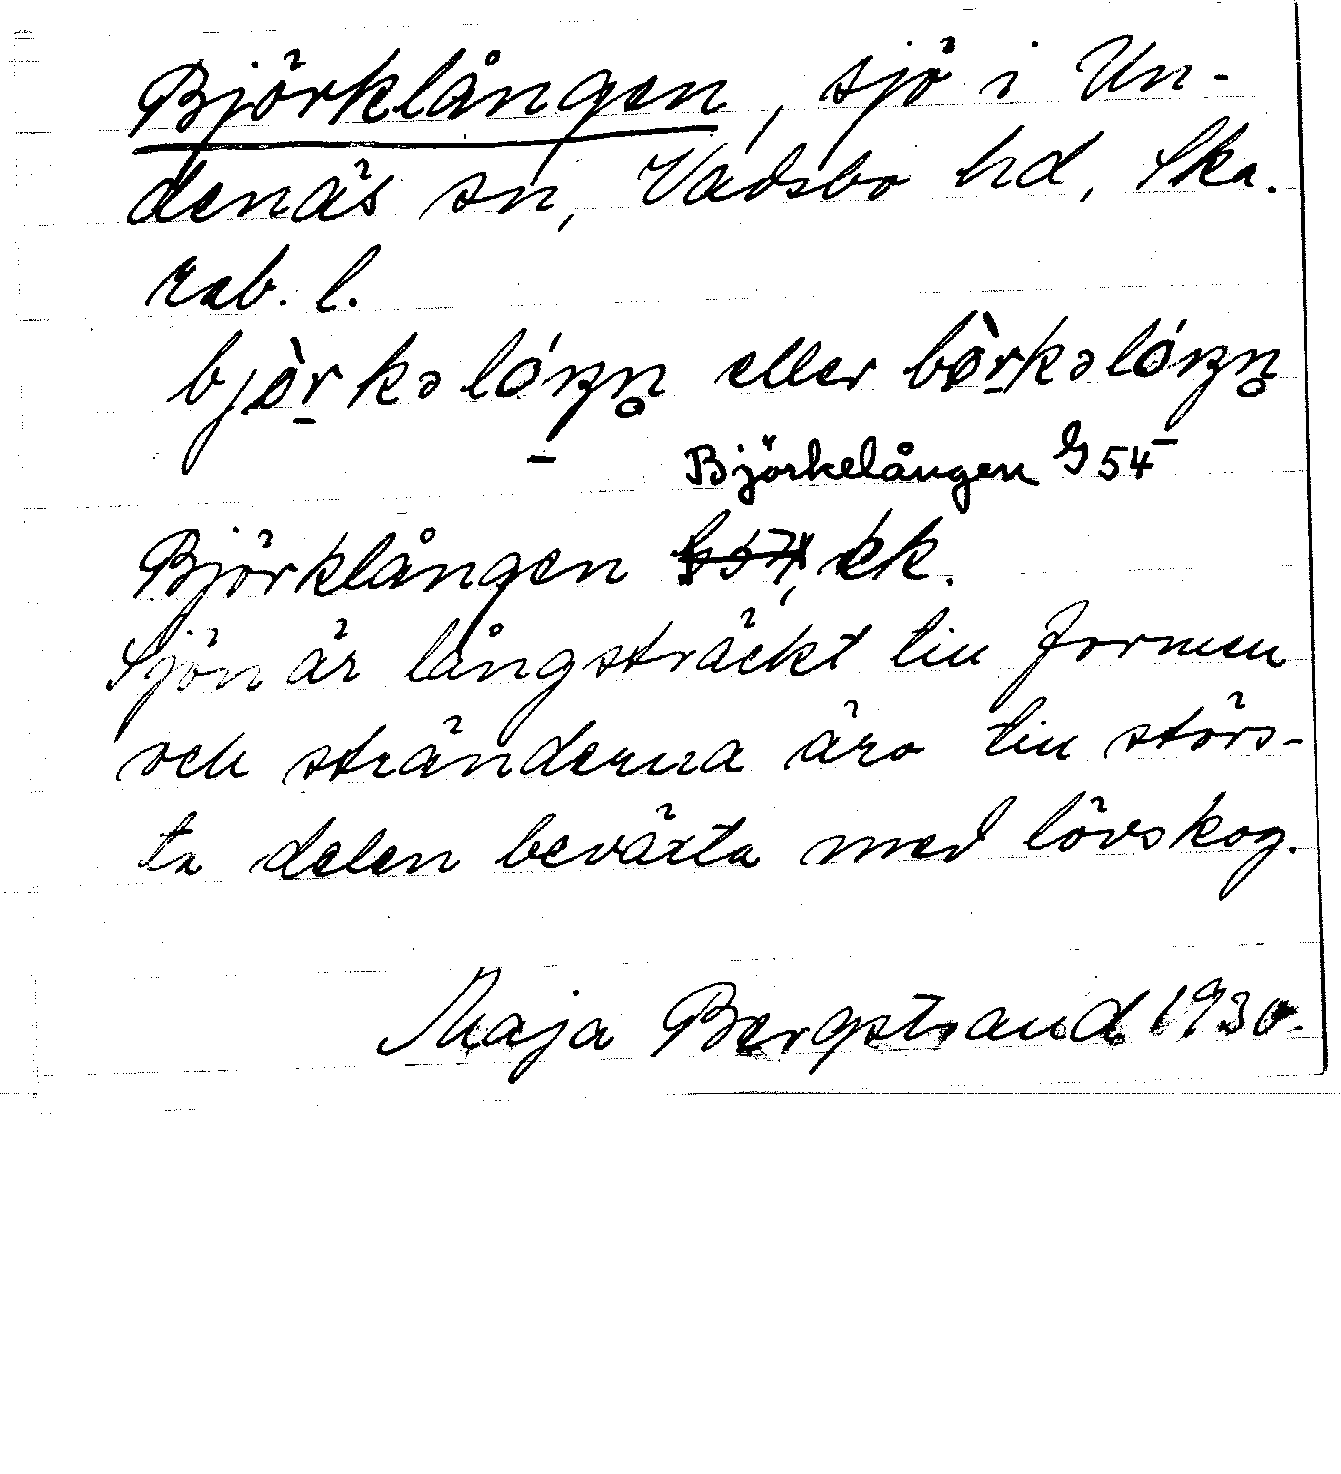 Björklången, sjö i Un-
denäs sn, Vadsbo hd, Ska.
rab. l.
bjòrkəlóŋn̥ eller bòrkəlóŋn̥
Björkelången G 54
Björklången G 54, ek.
Sjön är långsträckt till formen
och stränderna äro till störs-
ta delen beväxta med lövskog.
Maja Bergstrand 1930.